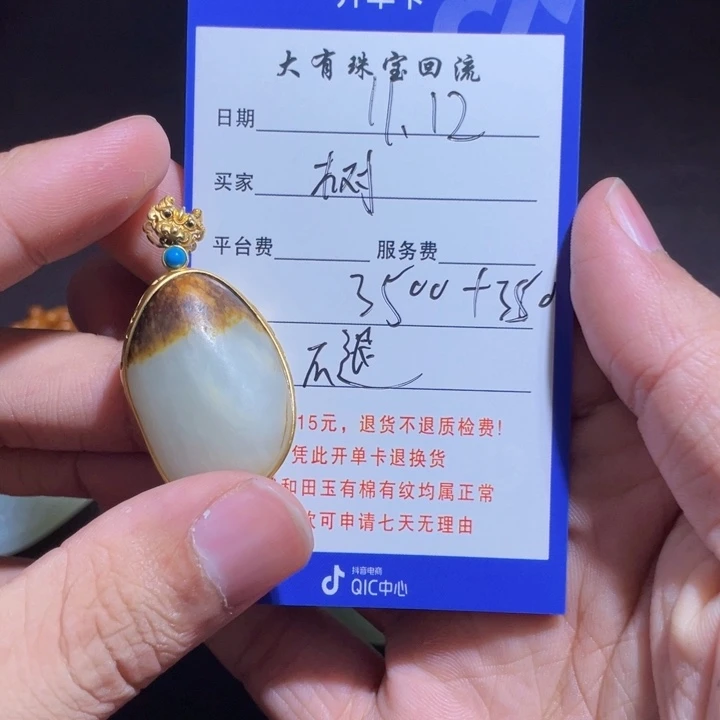 开单卡
大有珠宝回流
日期 11.12
买家
平台费 服务费
3500+350
不退
15元，退货不退质检费!
凭此开单卡退换货
和田玉有棉有纹均属正常
可申请七天无理由
抖音电商
QIC中心